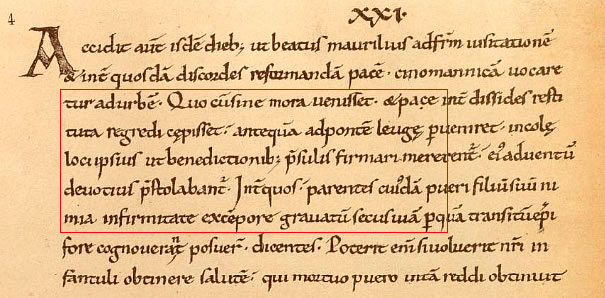 4
XXI·
Accidit aut̄ isdē dieb; ut beatus maurilius ad fr̄m uisitationē
& int̄ quosdā discordes reformandā pacē · cinomannicā uocare
tur ad urbē · Quo cū sine mora uenisset · & pace int̄ dissides resti
tuta regredi cępisset · antequā ad pontē leugę ꝑueniret · incolę
loci ipsius ut benedictionib; p̄sulis firmari mererent̄ · ei᾽ aduentū
deuotius p̄stolabant̄ · Int̄ quos · parentes cui᾽dā pueri filiū suū ni
mia infirmitate ex tēpore grauatū secus uiā ꝑ quā transitū ep̄i
fore cognouerant̄ posuer̄ · dicentes · Poterit eni si uoluerit nr̄i in
fantuli obtinere salutē · qui mortuo puero uitā reddi obtinuit